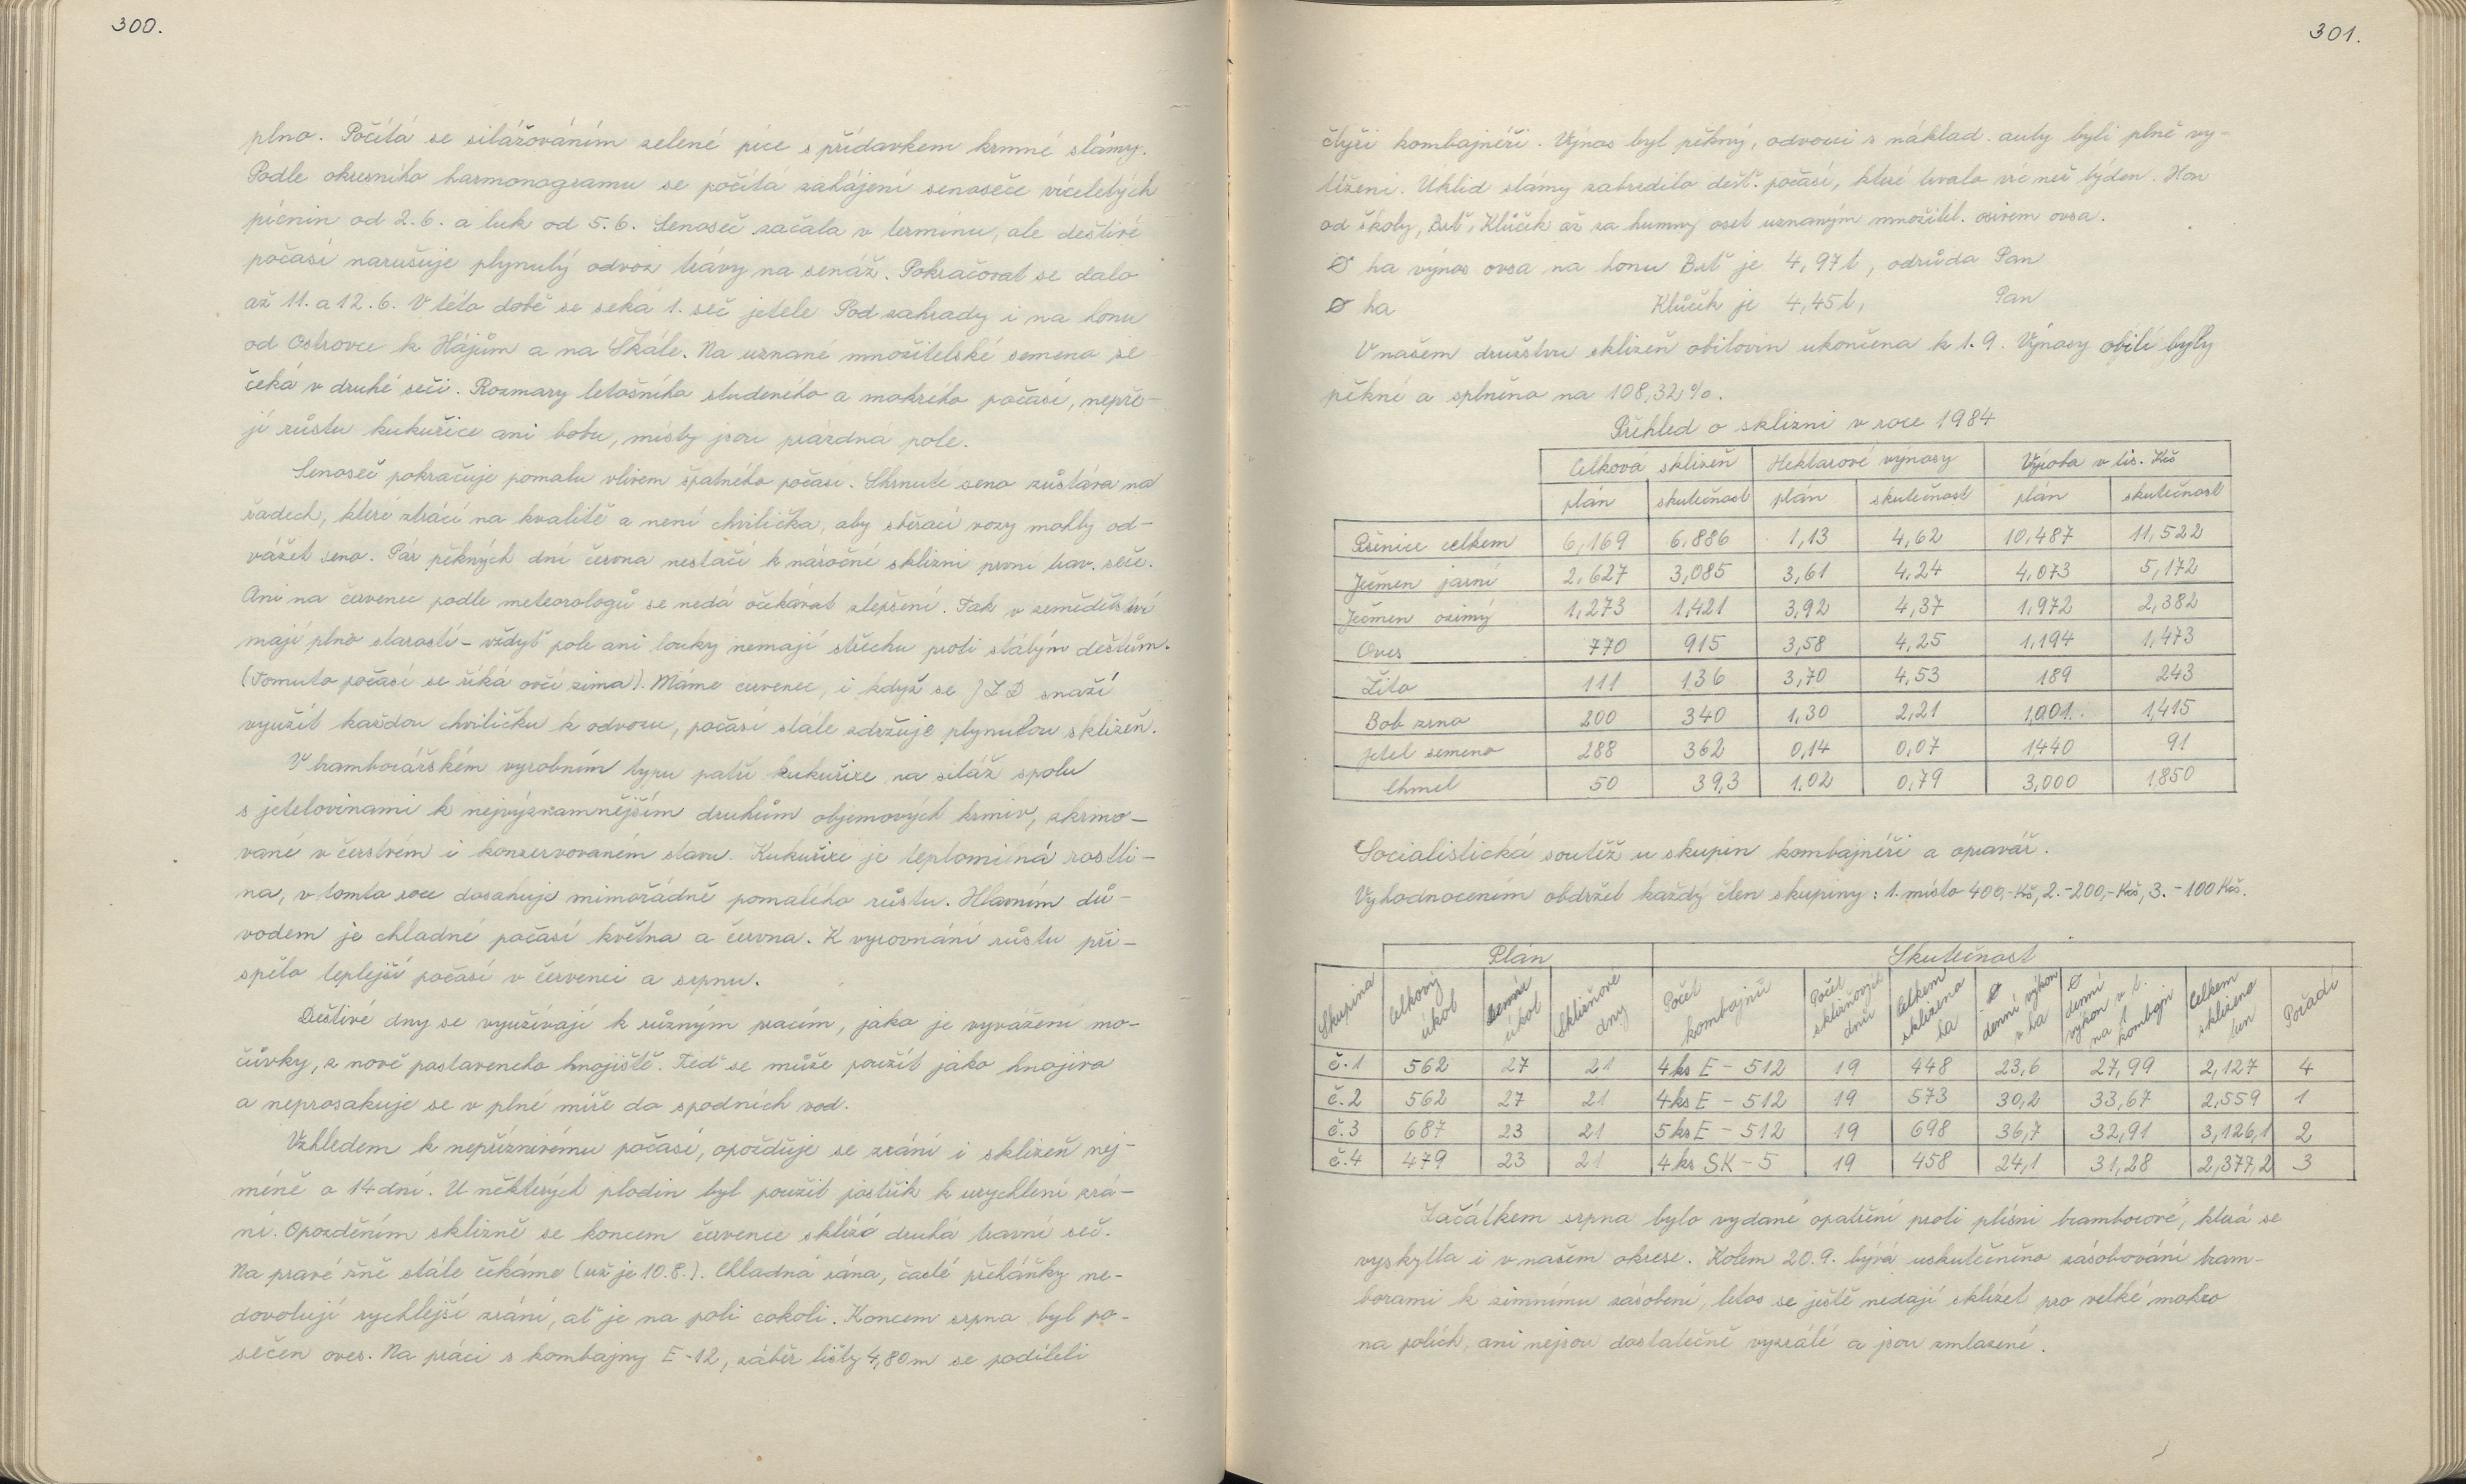 300.
plno. Počítá se silážováním zelené píce s přídavkem krmné slámy.
Podle okresního harmonogramu se počítá zahájení senoseče víceletých
pícnin od 2.6. a luk od 5.6. Senoseč začala v termínu, ale deštivé
počasí narušuje plynulý odvoz trávy na senáž. Pokračovat se dalo
až 11. a 12.6. V této době se seká 1. seč jetele Pod zahrady i na honu
od Ostrovce k Hájům a na Skále. Na uznané množitelské semeno se
čeká v druhé seči. Rozmary letošního studeného a mokrého počasí, nepře-
jí růstu kukuřice ani bobu, místy jsou prázdná pole.
Senoseč pokračuje pomalu vlivem špatného počasí. Shrnuté seno zůstává na
řadech, které ztrácí na kvalitě a není chvilička, aby sběrací vozy mohly od-
vážet seno. Pár pěkných dní června nestačí k náročné sklizni první trav. seče.
Ani na červenec podle meteorologů se nedá očekávat zlepšení. Tak v zemědělství
mají plno starostí - vždyť pole ani louky nemají střechu proti stálým deštům.
(Tomuto počasí se říká ovčí zima). Máme červenec, i když se JZD snaží
využít každou chviličku k odvozu, počasí stále zdržuje plynulou sklizeň.
V bramborářském výrobním typu patří kukuřice na siláž spolu
s jetelovinami k nejvýznamnějším druhům objemových krmiv, zkrmo-
vané v čerstvém i konzervovaném stavu. Kukuřice je teplomilná rostli-
na, v tomto roce dosahuje mimořádně pomalého růstu. Hlavním dů-
vodem je chladné počasí května a června. K vyrovnání růstu při-
spělo teplejší počasí v červenci a srpnu.
Deštivé dny se využívají k různým pracím, jako je vyvážení mo-
čůvky, z nově postaveného hnojiště. Teď se může použít jako hnojiva
a neprosakuje se v plné míře do spodních vod.
Vzhledem k nepříznivému počasí, opožďuje se zrání i sklizeň nej-
méně o 14 dní. U některých plodin byl použit postřik k urychlení zrá-
ní. Opožděním sklizně se koncem července sklízí druhá travní seč.
Na pravé žně stále čekáme (už je 10.8.). Chladná rána, časté přeháňky ne-
dovolují rychlejší zrání, ať je na poli cokoli. Koncem srpna byl po-
sečen oves. Na práci s kombajny E-12, záběr lišty 4,80 m se podíleli
301.
čtyři kombajnéři. Výnos byl pěkný, odvozci s náklad. auty byli plně vy-
tíženi. Úklid slámy zabrzdilo dešť. počasí, které trvalo víc než týden. Hon
od školy, Brť, Klůček až za humny oset uznaným množitel. osivem ovsa.
Ø ha výnos ovsa na honu Brť je 4,97 t, odrůda Pan
Ø ha Klůček je 4,45 t, Pan
V našem družstvu sklizeň obilovin ukončena k 1.9. Výnosy obilí byly
pěkné a splněno na 108,32 %.
Přehled o sklizni v roce 1984
Celková sklizeň Hektarové výnosy Výroba v tis. Kčs
plán skutečnost plán skutečnost plán skutečnost
Pšenice celkem 6,169 6.886 1,13 4,62 10,487 11,522
Ječmen jarní 2,627 3,085 3,61 4,24 4,073 5,172
Ječmen ozimý 1,273 1,421 3,92 4,37 1,972 2,382
Oves 770 915 3,58 4,25 1,194 1,473
Žito 111 136 3,70 4,53 189 243
Bob zrno 200 340 1,30 2,21 1,001. 1,415
Jetel semeno 288 362 0,14 0,07 1440 91
Chmel 50 39,3 1,02 0,79 3,000 1,850
Socialistická soutěž u skupin kombajnéři a opravář.
Vyhodnocením obdržel každý člen skupiny: 1. místo 400,- Kčs, 2. - 200,- Kčs, 3. - 100 Kčs.
Plán Skutečnost
Skupina Celkový úkol Denní úkol Sklizňové dny Počet kombajnů Počet sklizňových dnů Celkem sklizeno ha Ø denní výkon v ha Ø denní výkon v t. na 1 kombajn Celkem sklizeno tun Pořadí
č.1 562 27 21 4 ks E - 512 19 448 23,6 27,99 2,127 4
č.2 562 27 21 4 ks E - 512 19 573 30,2 33,67 2,559 1
č.3 687 23 21 5 ks E - 512 19 698 36,7 32,91 3,126,1 2
č.4 479 23 21 4 ks SK - 5 19 458 24,1 31,28 2,377,2 3
Začátkem srpna bylo vydané opatření proti plísni bramborové, která se
vyskytla i v našem okrese. Kolem 20.9. bývá uskutečněno zásobování bram-
borami k zimnímu zásobení, letos se ještě nedají sklízet pro velké mokro
na polích, ani nejsou dostatečně vyzrálé a jsou zmlazené.